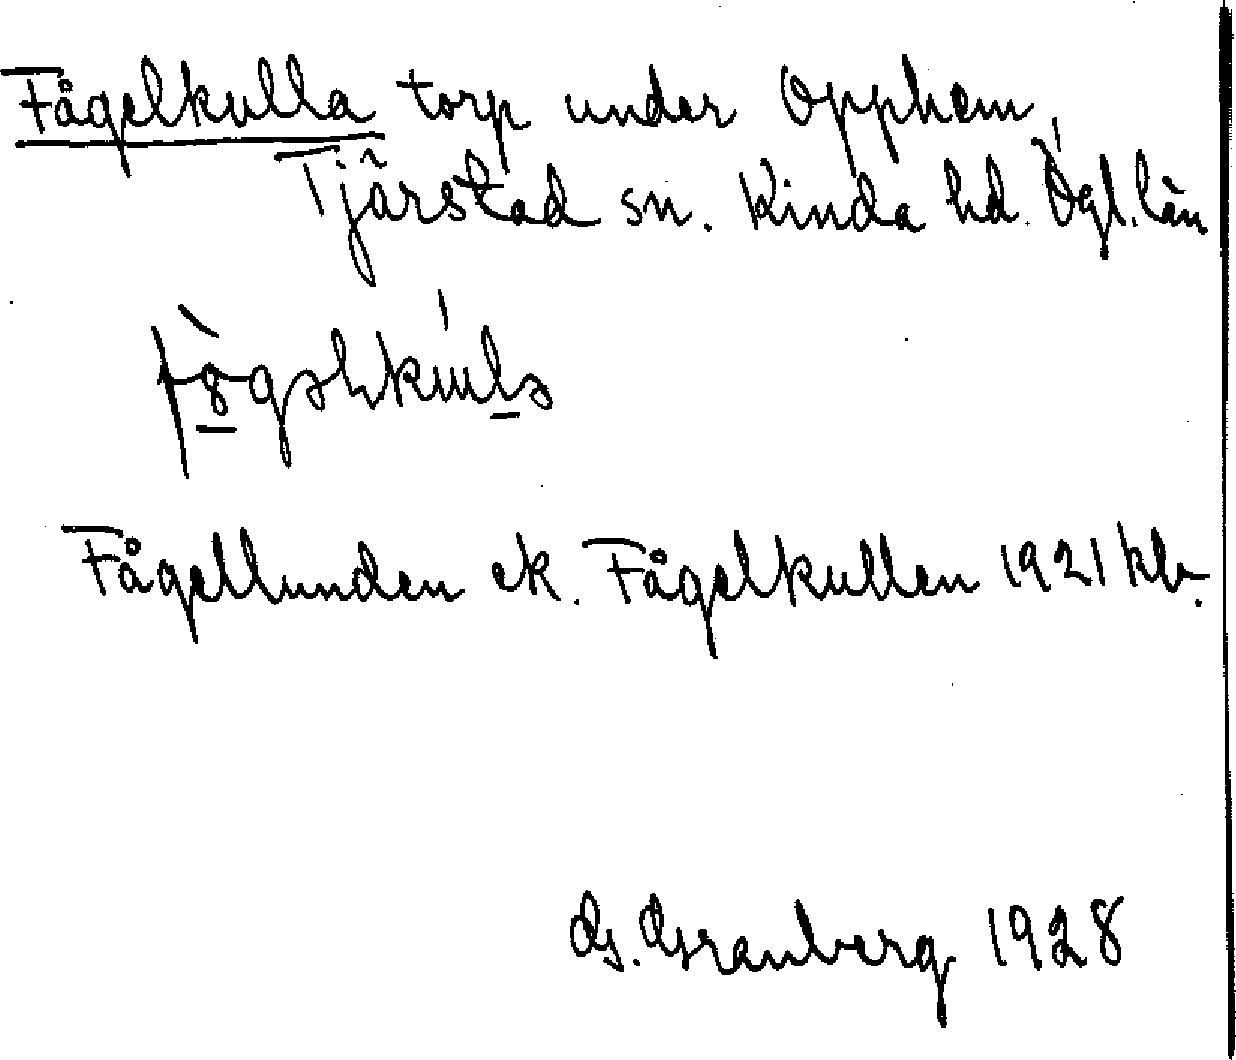 Fågelkulla torp under Opphem
Tjärstad sn. Kinda hd. Ögl. län
Fågellunden ek. Fågelkullen 1921 kbr.
G. Granberg 1928